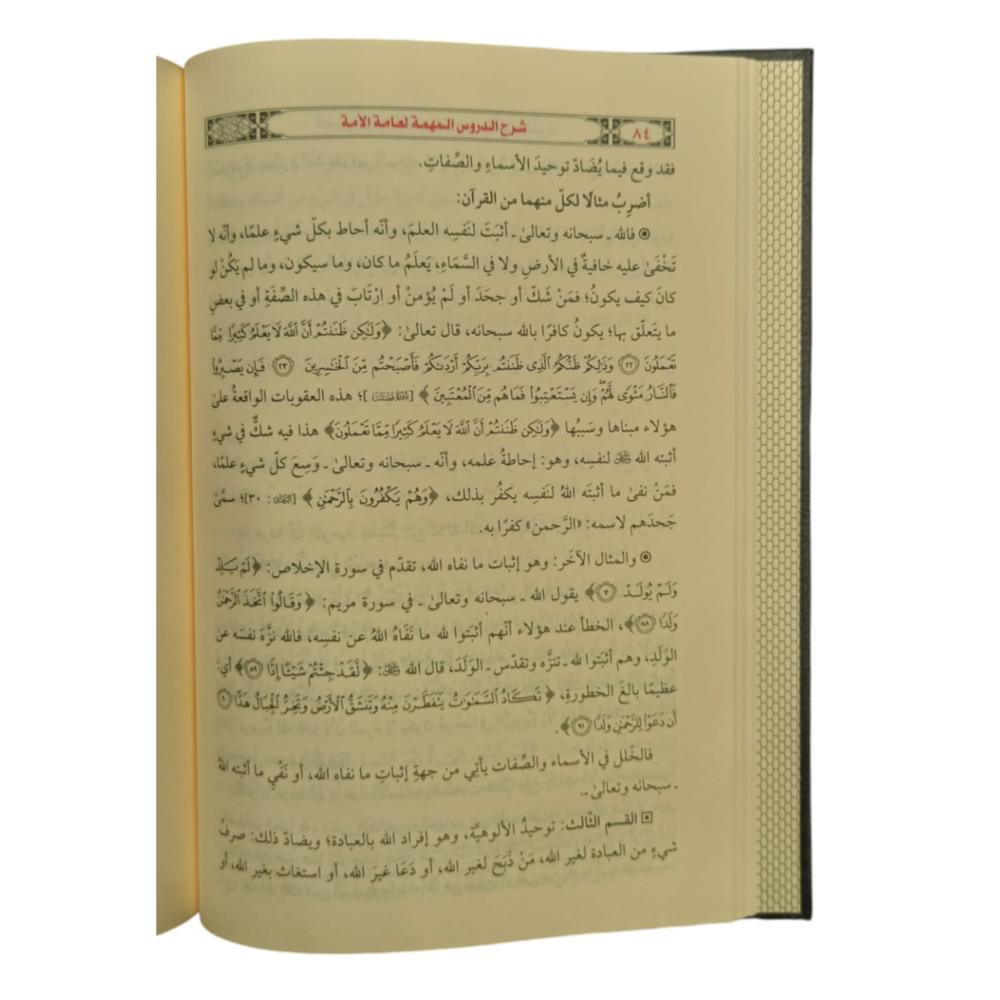 شرح الدروس المهمة لعامة الأمة
٨٤
فقد وقع فيما يُضَادّ توحيدَ الأسماءِ والصِّفاتِ.
أضرِبُ مثالًا لكلّ منهما من القرآن:
◉ فالله ـ سبحانه وتعالىٰ ـ أثبَتَ لنَفسِه العلمَ، وأنّه أحاط بكلّ شيءٍ علمًا، وأنّه لا
تَخْفَىٰ عليه خافيةٌ في الأرضِ ولا في السَّمَاءِ، يَعلَمُ ما كان، وما سيكون، وما لم يَكُنْ لو
كانَ كيف يكونُ؛ فمَنْ شَكّ أو جحَدَ أو لَمْ يُؤمنْ أو ارْتَابَ في هذه الصِّفَةِ أو في بعضِ
ما يتَعلّق بها؛ يكونُ كافرًا بالله سبحانه، قال تعالىٰ: ﴿وَلَٰكِن ظَنَنتُمْ أَنَّ ٱللَّهَ لَا يَعْلَمُ كَثِيرًا مِّمَّا
تَعْمَلُونَ ٢٢ وَذَٰلِكُمْ ظَنُّكُمُ ٱلَّذِى ظَنَنتُم بِرَبِّكُمْ أَرْدَىٰكُمْ فَأَصْبَحْتُم مِّنَ ٱلْخَٰسِرِينَ ٢٣ فَإِن يَصْبِرُوا۟
فَٱلنَّارُ مَثْوًى لَّهُمْ وَإِن يَسْتَعْتِبُوا۟ فَمَا هُم مِّنَ ٱلْمُعْتَبِينَ﴾ []؛ هذه العقوبات الواقعةُ علىٰ
هؤلاء مبناها وسَببُها ﴿وَلَٰكِن ظَنَنتُمْ أَنَّ ٱللَّهَ لَا يَعْلَمُ كَثِيرًا مِّمَّا تَعْمَلُونَ﴾ هذا فيه شكٌّ في شيءٍ
أثبته الله ﷻ لنفسِه، وهو: إحاطةُ علمه، وأنّه ـ سبحانه وتعالىٰ ـ وَسِعَ كلّ شيءٍ علمًا،
فمَنْ نفىٰ ما أثبَتَه اللهُ لنَفسِه يكفُر بذلك، ﴿وَهُمْ يَكْفُرُونَ بِٱلرَّحْمَٰنِ﴾ [: ٣٠]؛ سمَّىٰ
جَحدَهم لاسمه: «الرَّحمن» كفرًا به.
◉ والمثال الآخَر: وهو إثبات ما نفاه الله، تقدّم في سورة الإخلاص: ﴿لَمْ يَلِدْ
وَلَمْ يُولَدْ ٣﴾ يقول الله ـ سبحانه وتعالىٰ ـ في سورة مريم: ﴿وَقَالُوا۟ ٱتَّخَذَ ٱلرَّحْمَٰنُ
وَلَدًا ٨٨﴾، الخطأ عند هؤلاء أنّهم أثبَتوا لله ما نَفَاهُ اللهُ عن نفسِه، فالله نزَّهَ نفسَه عن
الوَلَدِ، وهم أثبَتوا لله ـ تنزّه وتقدّس ـ الوَلَدَ، قال الله ﷻ: ﴿لَّقَدْ جِئْتُمْ شَيْـًٔا إِدًّا ٨٩﴾ أي:
عظيمًا بالغَ الخطورةِ، ﴿تَكَادُ ٱلسَّمَٰوَٰتُ يَتَفَطَّرْنَ مِنْهُ وَتَنشَقُّ ٱلْأَرْضُ وَتَخِرُّ ٱلْجِبَالُ هَدًّا ٩٠
أَن دَعَوْا۟ لِلرَّحْمَٰنِ وَلَدًا ٩١﴾.
فالخَلل في الأسماء والصِّفات يأتِي من جهةِ إثباتِ ما نفاه الله، أو نَفْيِ ما أثبته اللهُ
ـ سبحانه وتعالىٰ ـ.
▣ القسم الثّالث: توحيدُ الألوهيَّة، وهو إفراد الله بالعبادة؛ ويضادّ ذلك: صرفُ
شيءٍ من العبادة لغير الله، مَنْ ذَبَحَ لغير الله، أو دَعَا غيرَ الله، أو استغاث بغير الله، أو